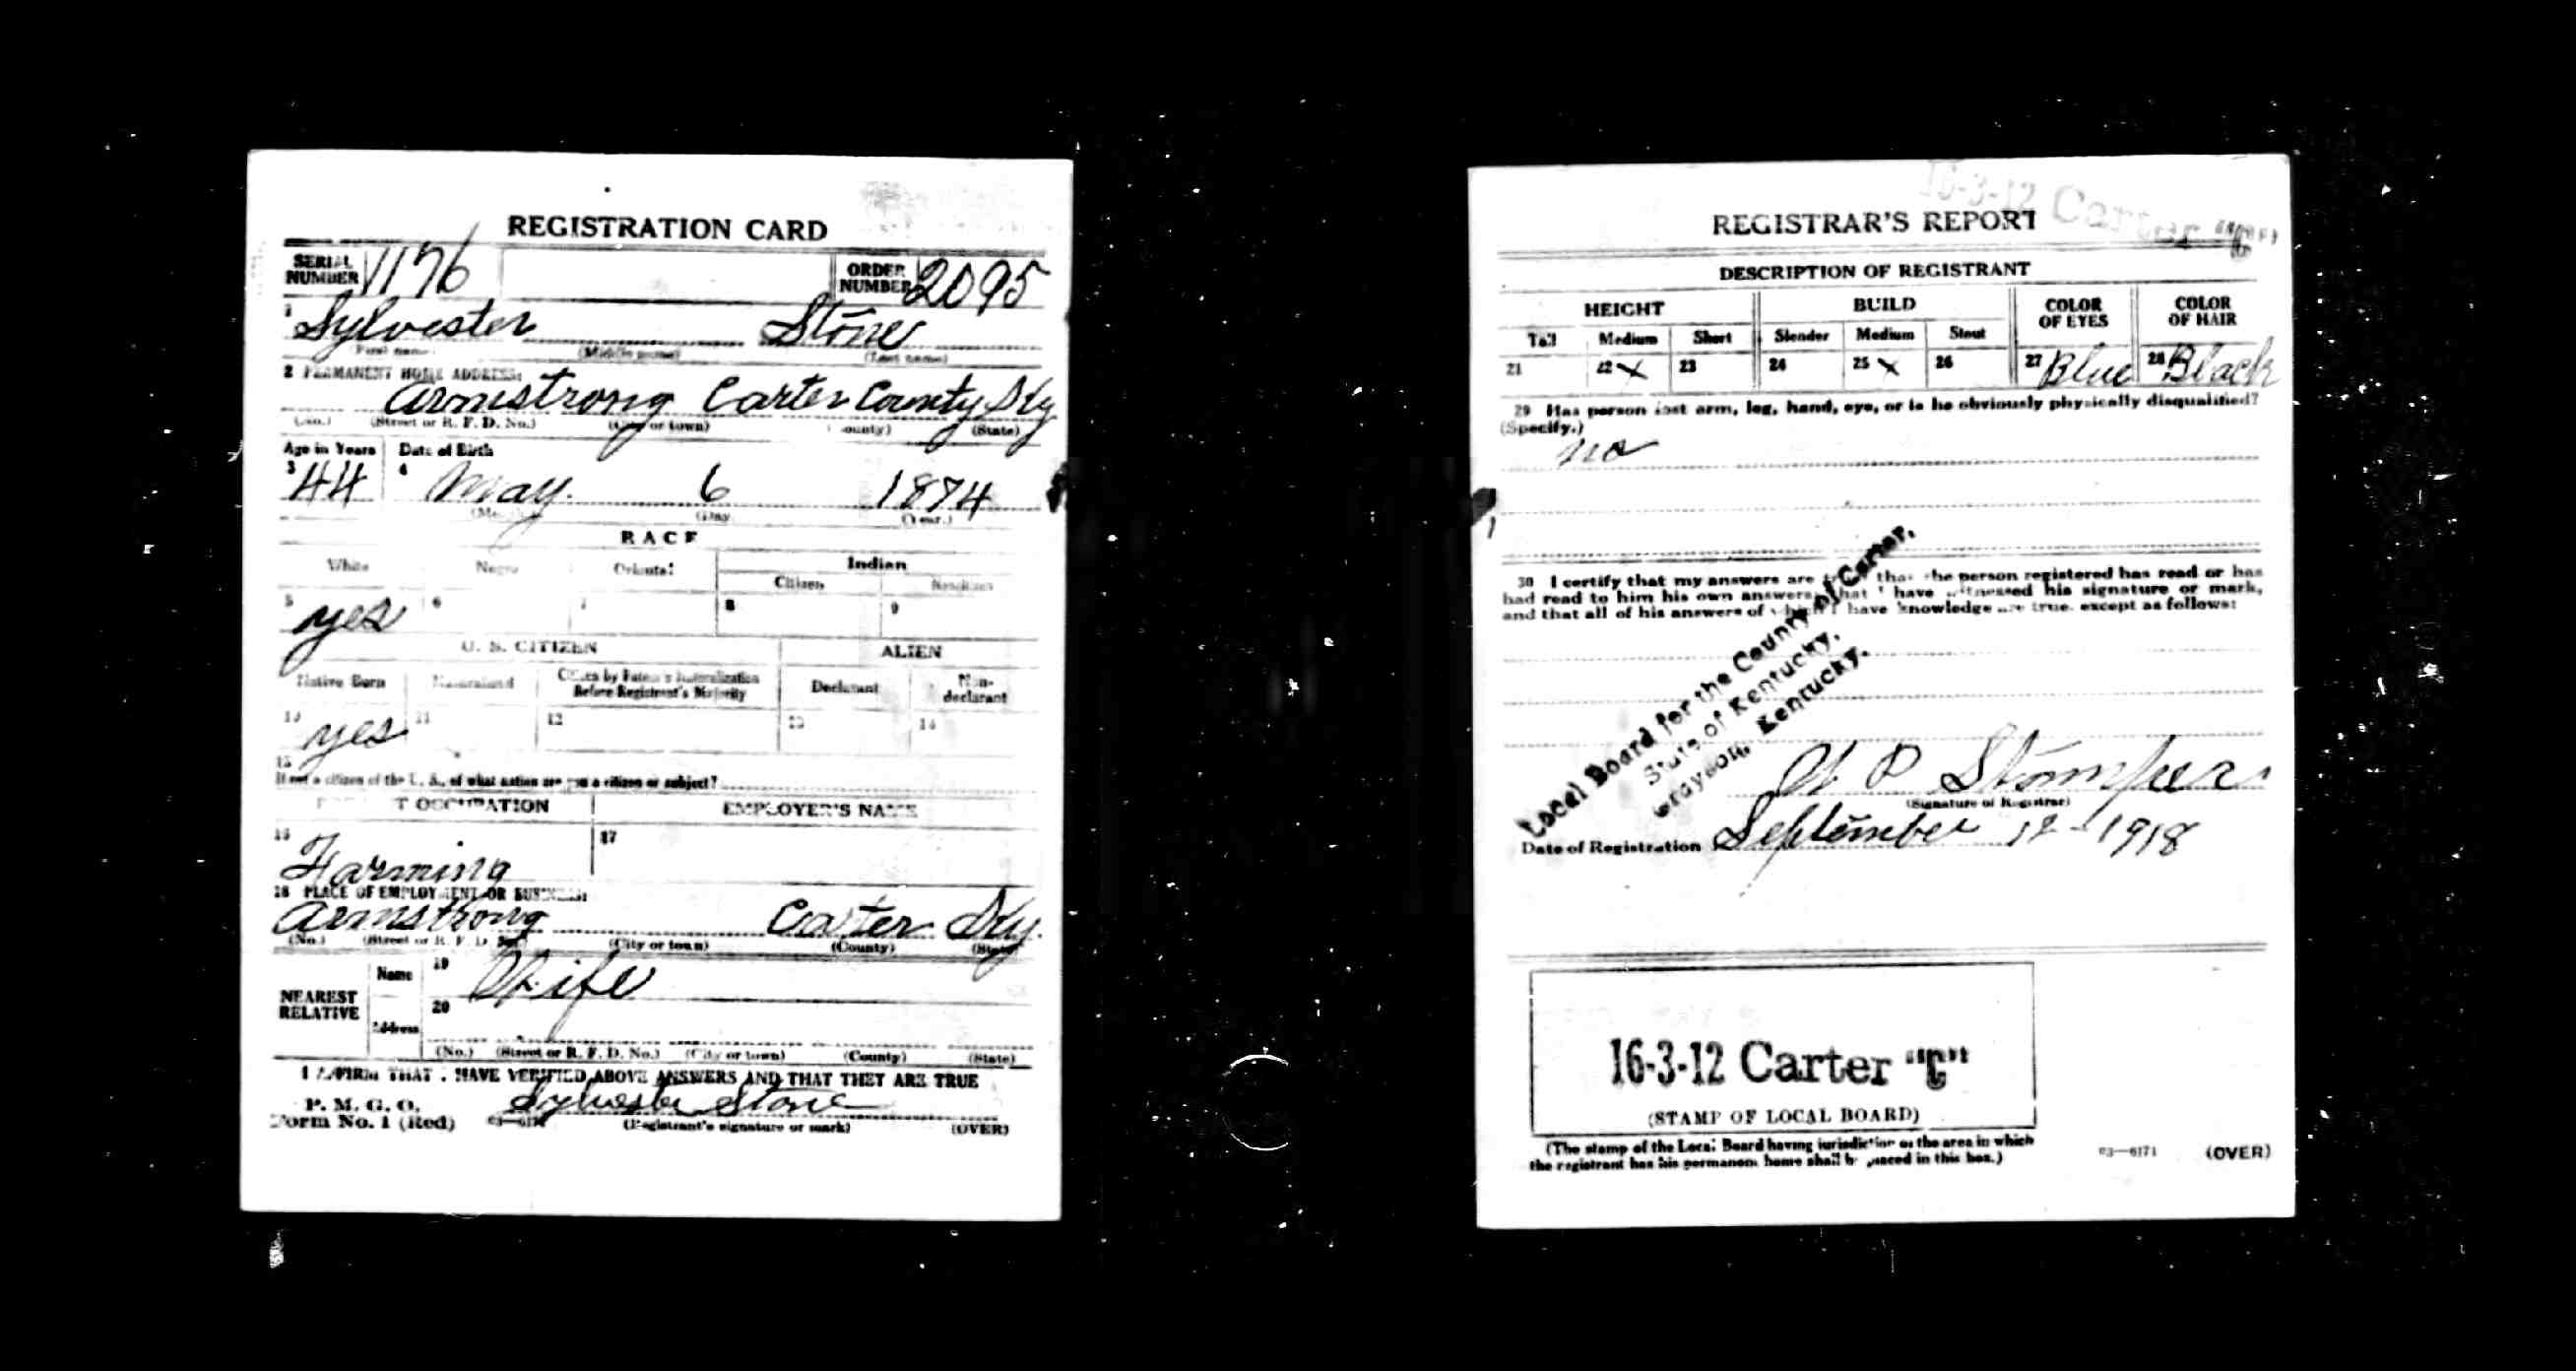 REGISTRATION CARD
SERIAL NUMBER 1176 ORDER NUMBER 2095
1 Sylvester Stone
First name (Middle name) (Last name)
2 PERMANENT HOME ADDRESS:
Armstrong Carter County Ky
(No.) (Street or R. F. D. No.) (City or town) (County) (State)
Age in Years Date of Birth
3 44 4 May 6 1874
(Month.) (Day.) (Year.)
RACE
White Negro Oriental Indian
Citizen Noncitizen
5 yes 6 7 8 9
U. S. CITIZEN ALIEN
Native Born Naturalized Citizen by Father's Naturalization Before Registrant's Majority Declarant Non-declarant
10 yes 11 12 13 14
15
If not a citizen of the U. S., of what nation are you a citizen or subject?
PRESENT OCCUPATION EMPLOYER'S NAME
16 Farming 17
18 PLACE OF EMPLOYMENT OR BUSINESS:
Armstrong Carter Ky.
(No.) (Street or R. F. D. No.) (City or town) (County) (State)
NEAREST RELATIVE Name 19 Wife
Address 20
(No.) (Street or R. F. D. No.) (City or town) (County) (State)
I AFFIRM THAT I HAVE VERIFIED ABOVE ANSWERS AND THAT THEY ARE TRUE
P. M. G. O.
Form No. 1 (Red) Sylvester Stone
(Registrant's signature or mark) (OVER)
16-3-12 Carter "C"
REGISTRAR'S REPORT
DESCRIPTION OF REGISTRANT
HEIGHT BUILD COLOR OF EYES COLOR OF HAIR
Tall Medium Short Slender Medium Stout
21 22 x 23 24 25 x 26 27 Blue 28 Black
29 Has person lost arm, leg, hand, eye, or is he obviously physically disqualified?
(Specify.)
no
30 I certify that my answers are true; that the person registered has read or has
had read to him his own answers; that I have witnessed his signature or mark,
and that all of his answers of which I have knowledge are true, except as follows:
Local Board for the County of Carter,
State of Kentucky,
Grayson, Kentucky.
(Signature of Registrar)
Date of Registration September 12 - 1918
16-3-12 Carter "C"
(STAMP OF LOCAL BOARD)
(The stamp of the Local Board having jurisdiction of the area in which
the registrant has his permanent home shall be placed in this box.)
03—6171 (OVER)